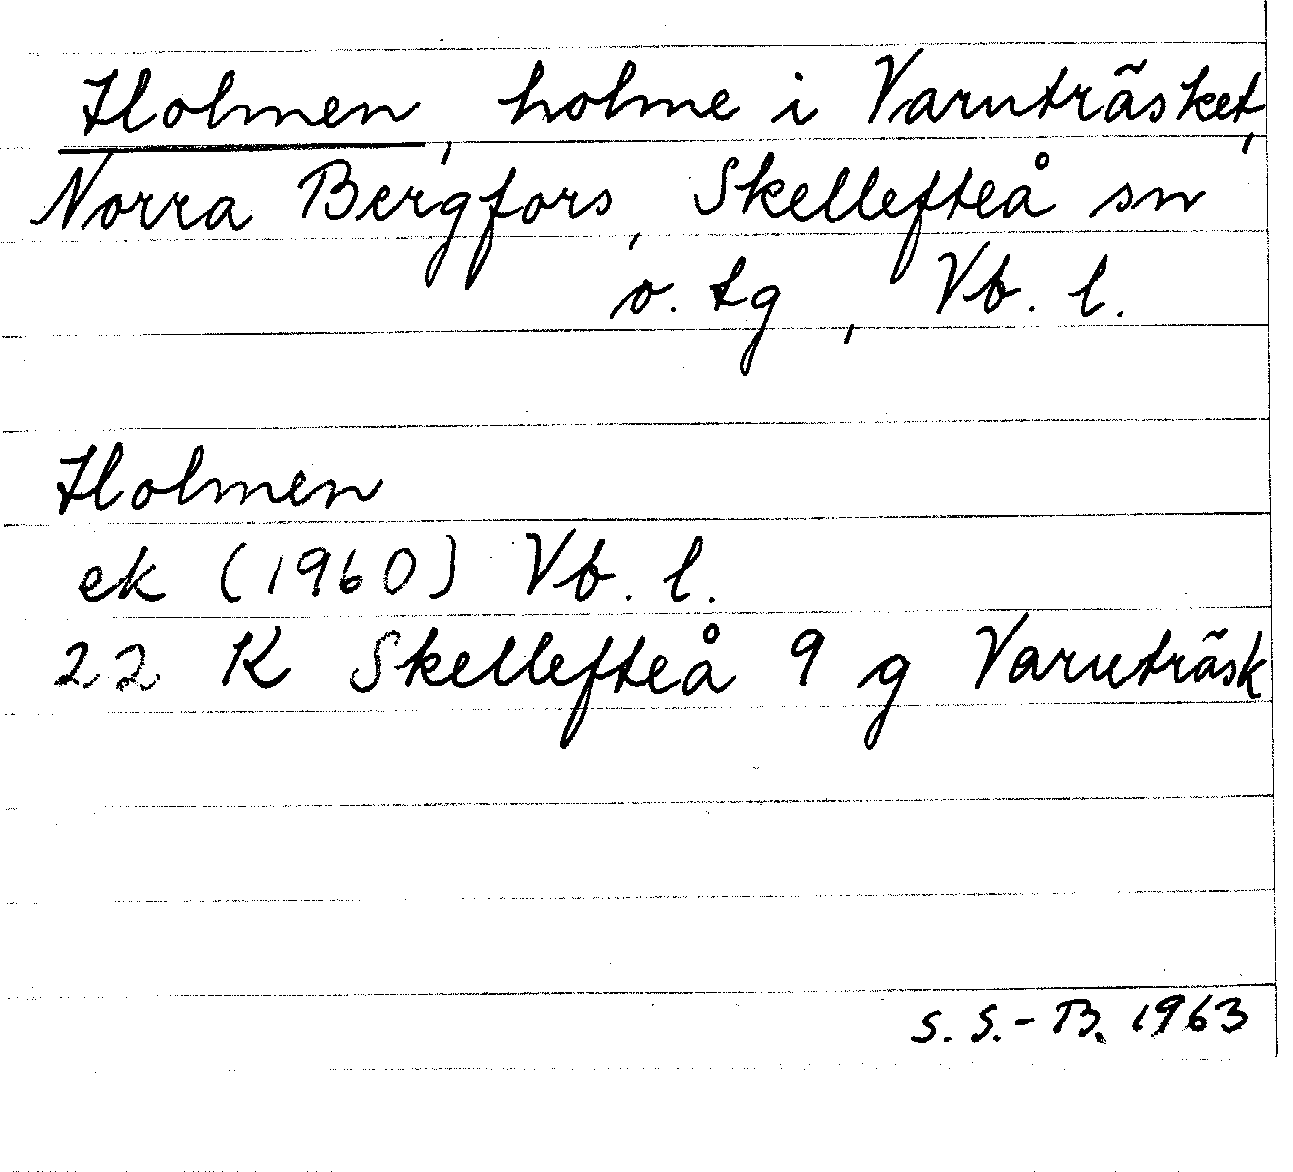 Holmen, holme i Varuträsket,
Norra Bergfors, Skellefteå sn
o. tg, Vb. l.
Holmen
ek (1960) Vb. l.
22 K Skellefteå 9 g Varuträsk
S. S.-B. 1963